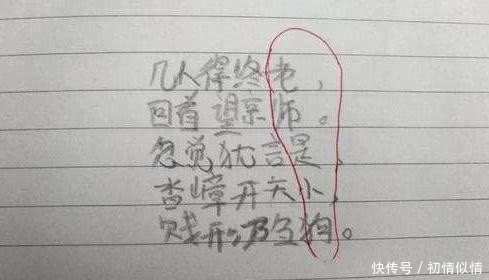 几人得终老，
回首望宗师。
忽觉犹言是
杳嶂开天小
贱形乃刍狗。
快传号／初情似情